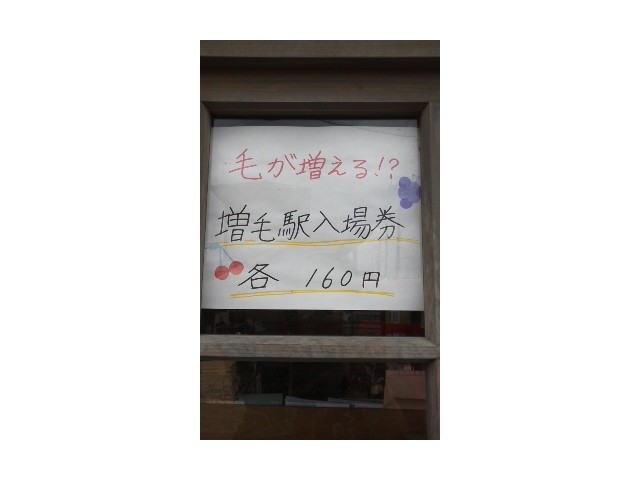 毛が増える!?
増毛駅入場券
各 160円